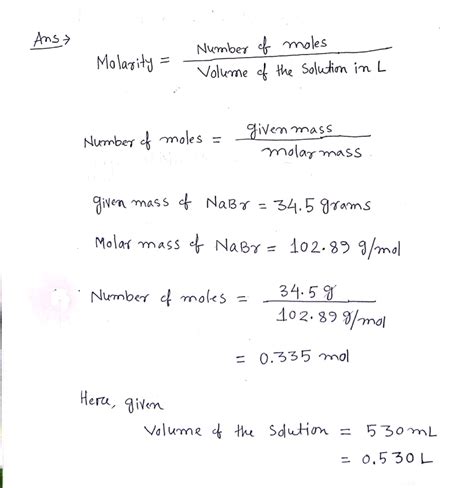 Ans →
Molarity = Number of moles / Volume of the Solution in L
Number of moles = given mass / molar mass
given mass of NaBr = 34.5 grams
Molar mass of NaBr = 102.89 g/mol
∴ Number of moles = 34.5 g / 102.89 g/mol
= 0.335 mol
Here, given
Volume of the Solution = 530 mL
= 0.530 L